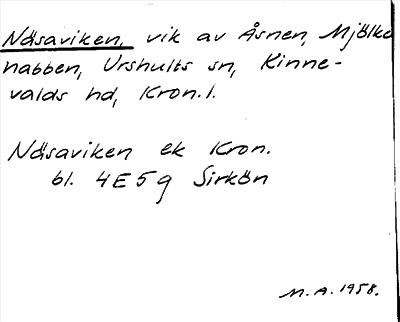 Näsaviken, vik av Åsnen, Mjölke
nabben, Urshults sn, Kinne-
valds hd, Kron.l.
Näsaviken ek Kron.
bl. 4E5g Sirkön
M.A. 1958.